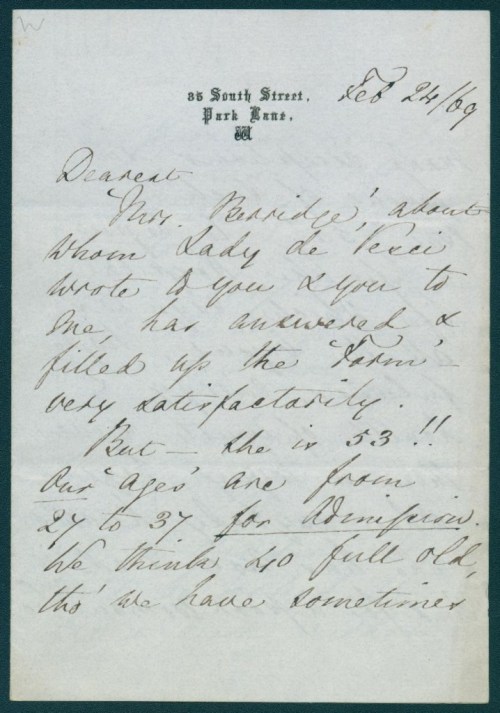 35 South Street,
Park Lane,
W
Feb 24/69
Dearest
'Mrs. Berridge', about
whom Lady de Vesci
wrote to you & you to
me, has answered &
filled up the 'Form' –
very satisfactorily.
But – she is 53!!
Our 'ages' are from
27 to 37 for Admission.
We think 40 full old,
tho' we have sometimes